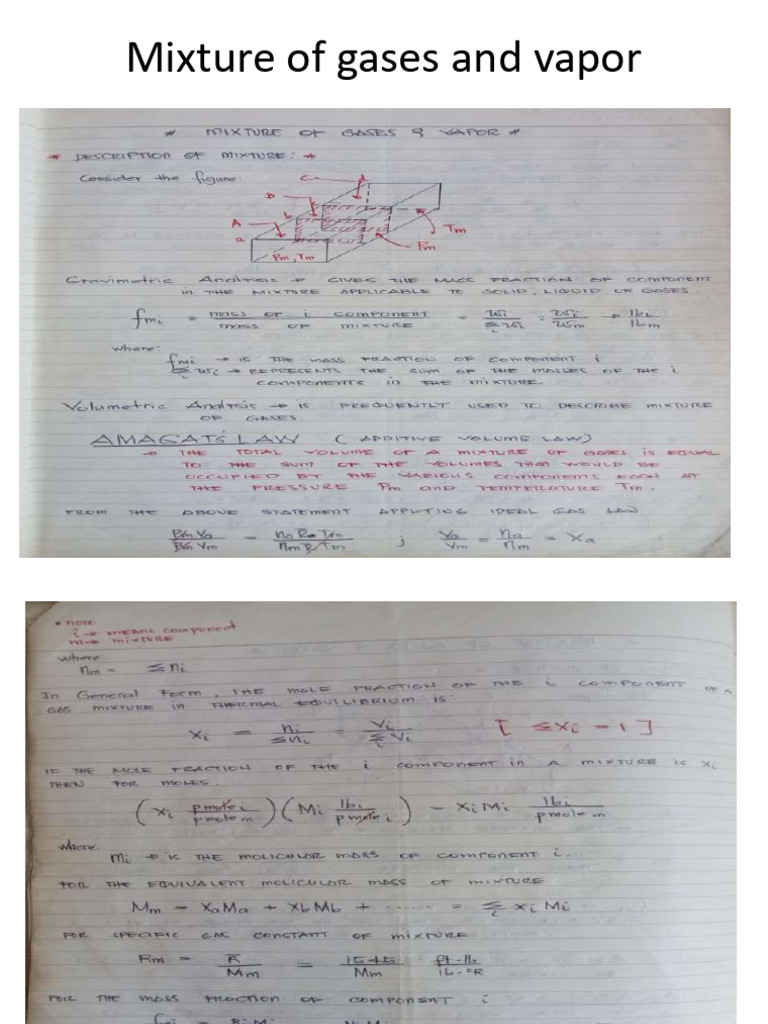 Mixture of gases and vapor
* MIXTURE OF GASES & VAPOR *
* DESCRIPTION OF MIXTURE: *
Consider the figure:
C d
D
b
A
a
Tm
Pm
Pm, Tm
Gravimetric Analysis → GIVES THE MASS FRACTION OF COMPONENT
in THE MIXTURE APPLICABLE TO SOLID, LIQUID OR GASES.
fmi = mass of i component / mass of mixture = wi / Σi wi = wi / wm → lbi / lbm
where:
fmi → is THE MASS FRACTION OF COMPONENT i
Σi wi → REPRESENTS THE SUM OF THE MASSES OF THE i
COMPONENTS in THE MIXTURE.
Volumetric Analysis → is FREQUENTLY USED TO DESCRIBE MIXTURE
OF GASES.
AMAGAT'S LAW (ADDITIVE VOLUME LAW)
→ THE TOTAL VOLUME OF A MIXTURE OF GASES IS EQUAL
TO THE SUM OF THE VOLUMES THAT WOULD BE
OCCUPIED BY THE VARIOUS COMPONENTS EACH AT
THE PRESSURE Pm and TEMPERATURE Tm.
FROM THE ABOVE STATEMENT APPLYING IDEAL GAS LAW
Pm Va / Pm Vm = na R Tm / nm R Tm ; Va / Vm = na / nm = Xa
* NOTE
i → means component
m → mixture
where:
nm = Σ ni
In General Form, THE MOLE FRACTION OF THE i COMPONENT OF A
GAS MIXTURE in THERMAL EQUILIBRIUM is:
Xi = ni / Σ ni = Vi / Σi Vi [ Σ Xi = 1 ]
IF THE MOLE FRACTION OF THE i COMPONENT in A MIXTURE is Xi
THEN FOR MOLES.
(Xi pmole i / pmole m) (Mi lbi / pmole i) = Xi Mi lbi / pmole m
where:
Mi → is THE MOLICULAR MASS OF COMPONENT i.
FOR THE EQUIVALENT MOLICULAR MASS OF MIXTURE
Mm = XaMa + XbMb + ..... = Σi Xi Mi
FOR SPECIFIC GAS CONSTANT OF MIXTURE
Rm = R / Mm = 1545 / Mm ft-lb / lb-°R
FOR THE MASS FRACTION OF COMPONENT i